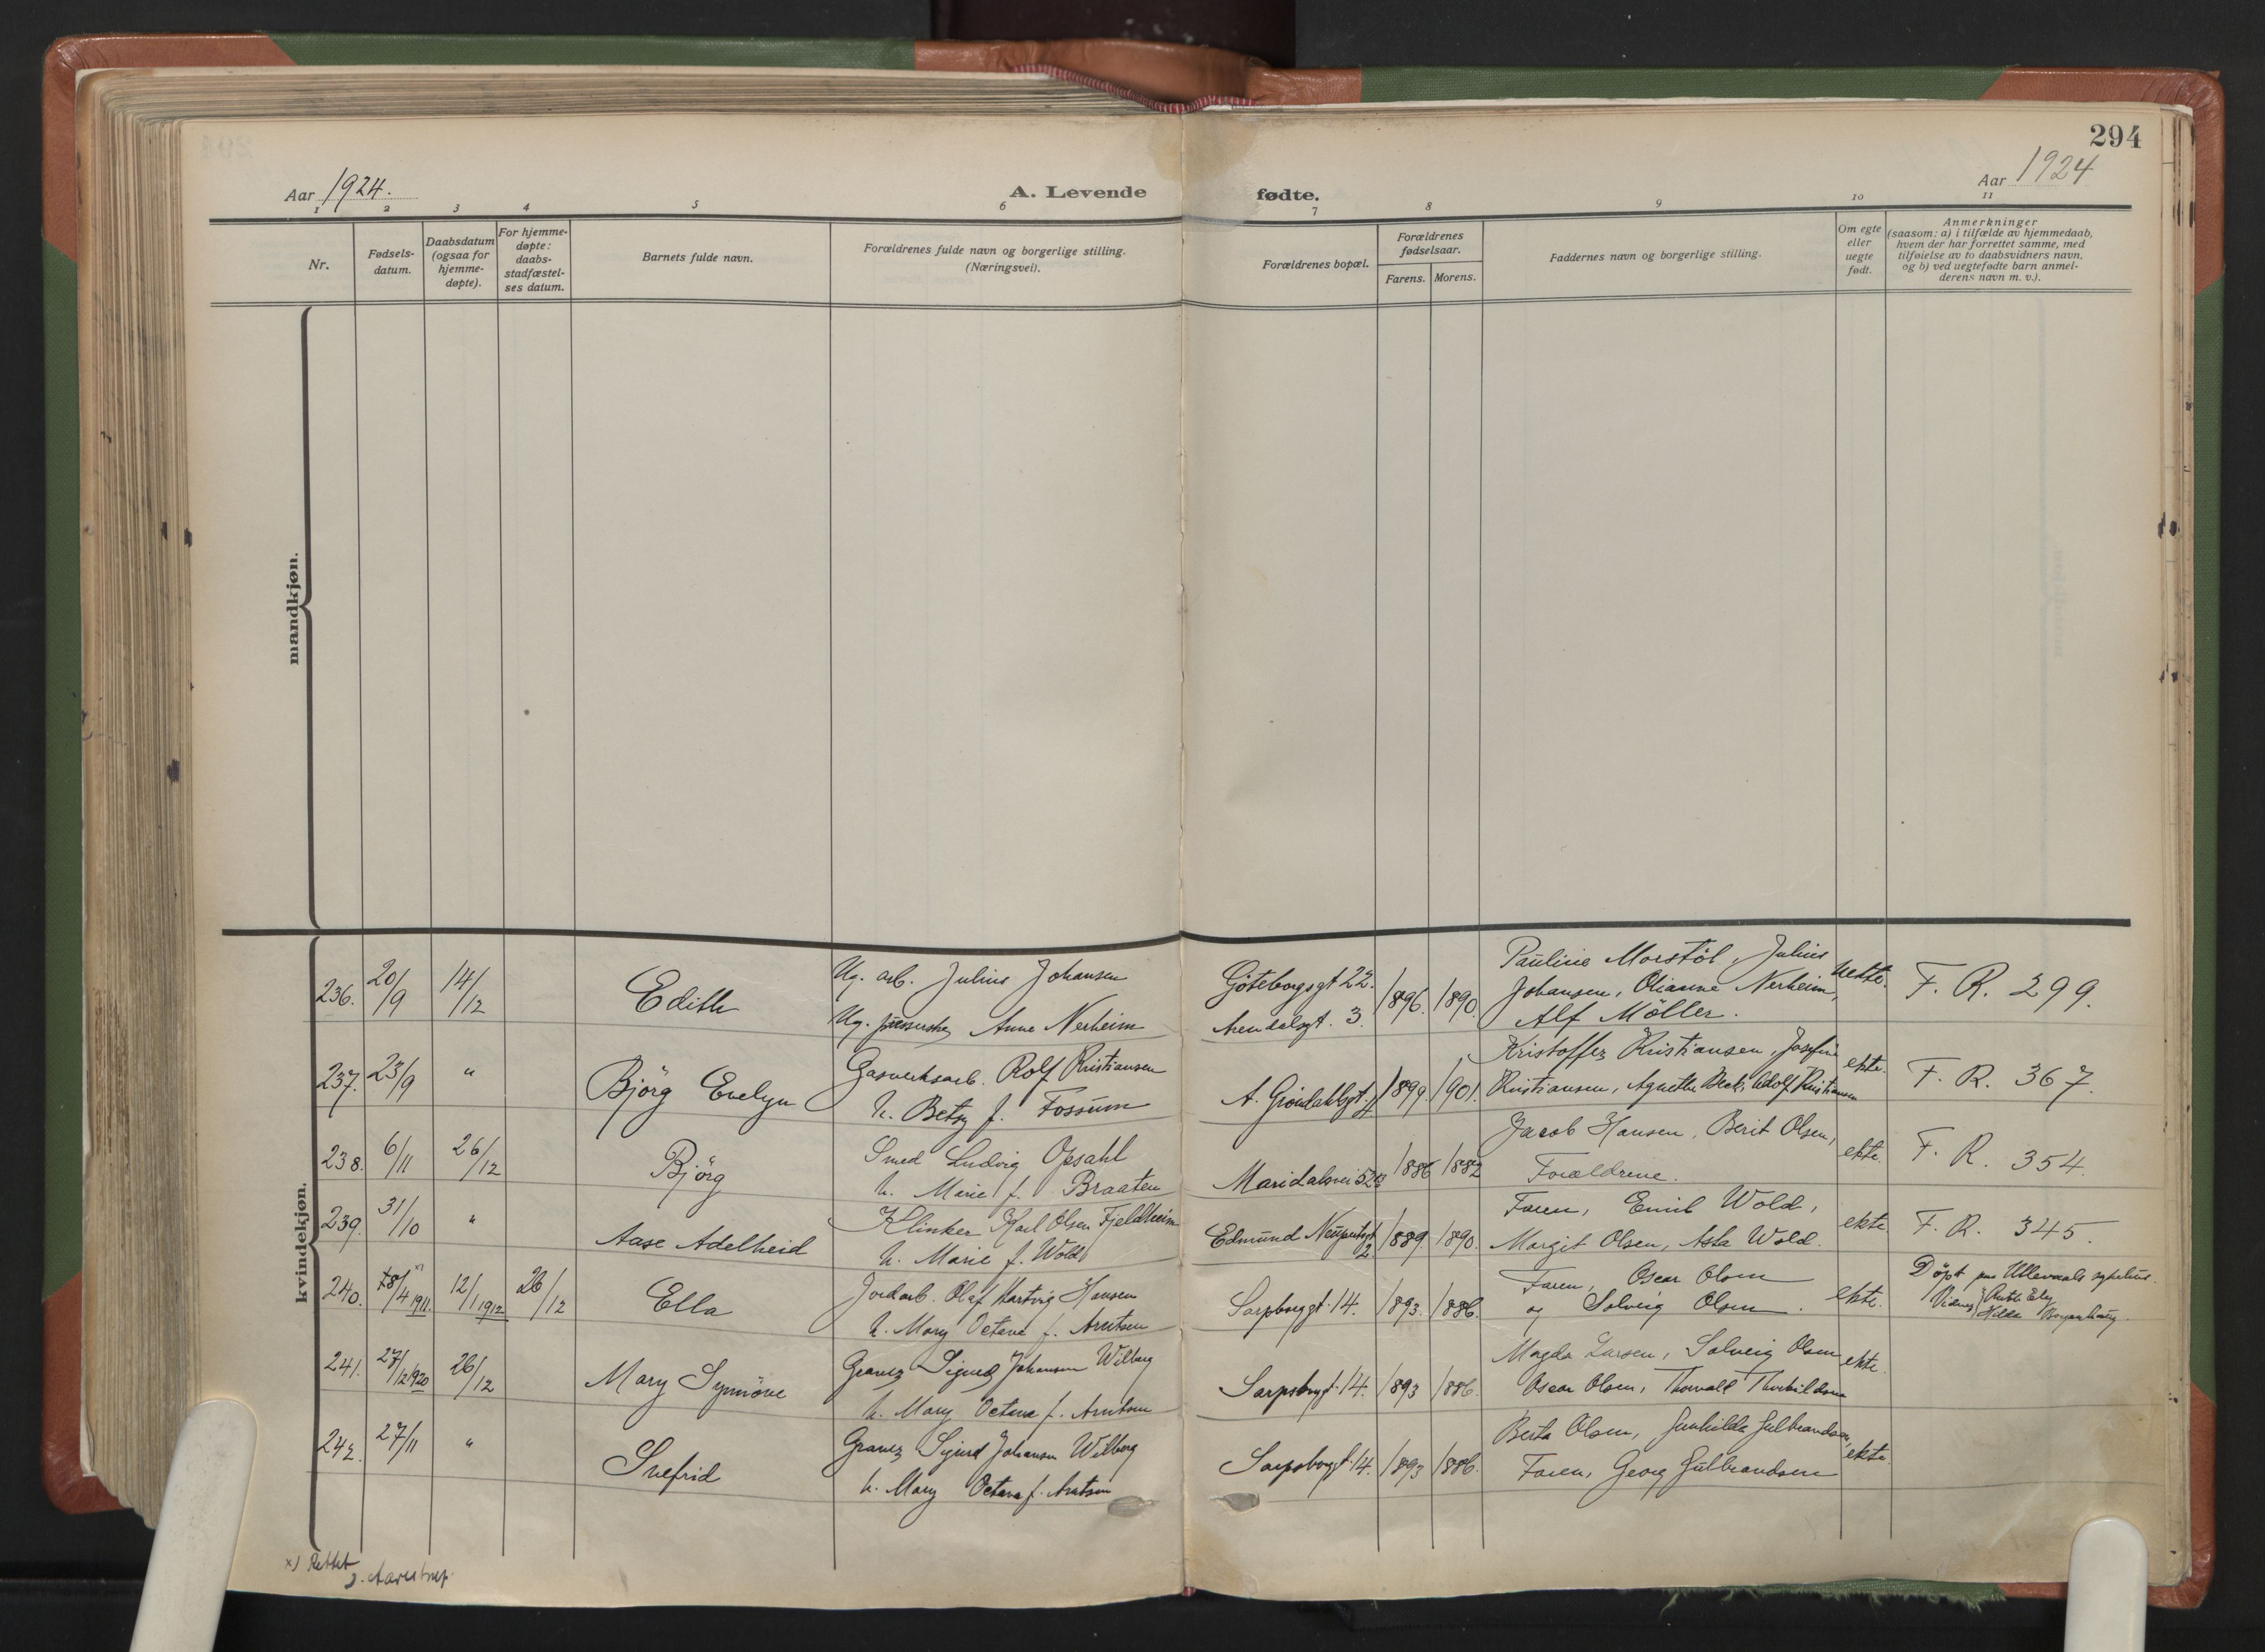 294
Aar 1924.
A. Levende
fødte.
Aar 1924
1 2 3 4 5 6 7 8 9 10 11
Nr.
Fødsels-
datum.
Daabsdatum
(ogsaa for
hjemme-
døpte).
For hjemme-
døpte:
daabs-
stadfæstel-
ses datum.
Barnets fulde navn.
Forældrenes fulde navn og borgerlige stilling.
(Næringsvei).
Forældrenes bopæl.
Forældrenes
fødselsaar.
Farens. Morens.
Faddernes navn og borgerlige stilling.
Om egte
eller
uegte
født.
Anmerkninger
(saasom: a) i tilfælde av hjemmedaab,
hvem der har forrettet samme, med
tilføielse av to daabsvidners navn,
og b) ved uegtefødte barn anmel-
derens navn m. v.).
mandkjøn.
kvindekjøn.
236. 20/9 14/12 Edith
Ug. arb. Julius Johansen
Ug. Anne Nerheim
Göteborgsgt 22.
Arendalsgt. 3.
1896. 1890.
Pauline Morstöl, Julius
Johansen, Olianne Nerheim,
Alf Möller.
uekte.
F. R. 299.
237. 23/9 " Björg Evelyn
Gasverksarb. Rolf Kristiansen
h. Betsy f. Fossum
A. Gröndahlsgt.
1899. 1901.
Kristoffer Kristiansen, Josefine
Kristiansen, Agnethe Adolf Kristiansen
ekte.
F. R. 367.
238. 6/11 26/12 Björg
Smed Ludvig Opsahl
h. Marie f. Braaten
Maridalsvei
1886 1882
Jacob Hansen, Berit Olsen,
Forældrene.
ekte.
F. R. 354.
239. 31/10 " Aase Adelheid
Klinker Karl Olsen Fjeldheim
h. Marie f. Wold
Edmund Neupertsgt
2.
1889. 1890.
Faren, Emil Wold,
Margit Olsen, Asta Wold.
ekte
F. R. 345.
240. 18/4 1911. 12/1 1912 26/12 Ella
Jordarb. Olaf Hartvig Hansen
h. Mary Octava f. Arntsen
Sarpsborggt. 14.
1893. 1886.
Faren, Oscar Olsen
og Solveig Olsen.
ekte.
Döpt paa Ullevaals sykehus.
Vidner
241. 27/12 1920 26/12 Mary Synnöve
Graver Sigurd Johansen Wilberg
h. Mary Octava f. Arntsen
Sarpsborggt. 14.
1893 1886.
Magda Larsen, Solveig Olsen
Oscar Olsen, Thorvald Thorkildsen
ekte.
242. 27/11 " Snefrid
Graver Sigurd Johansen Wilberg
h. Mary Octava f. Arntsen
Sarpsborggt. 14.
1893 1886.
Berta Olsen, Gunhilda Gulbrandsen,
Faren, Georg Gulbrandsen
ekte.
x) Rettet
J. Aarestrup.